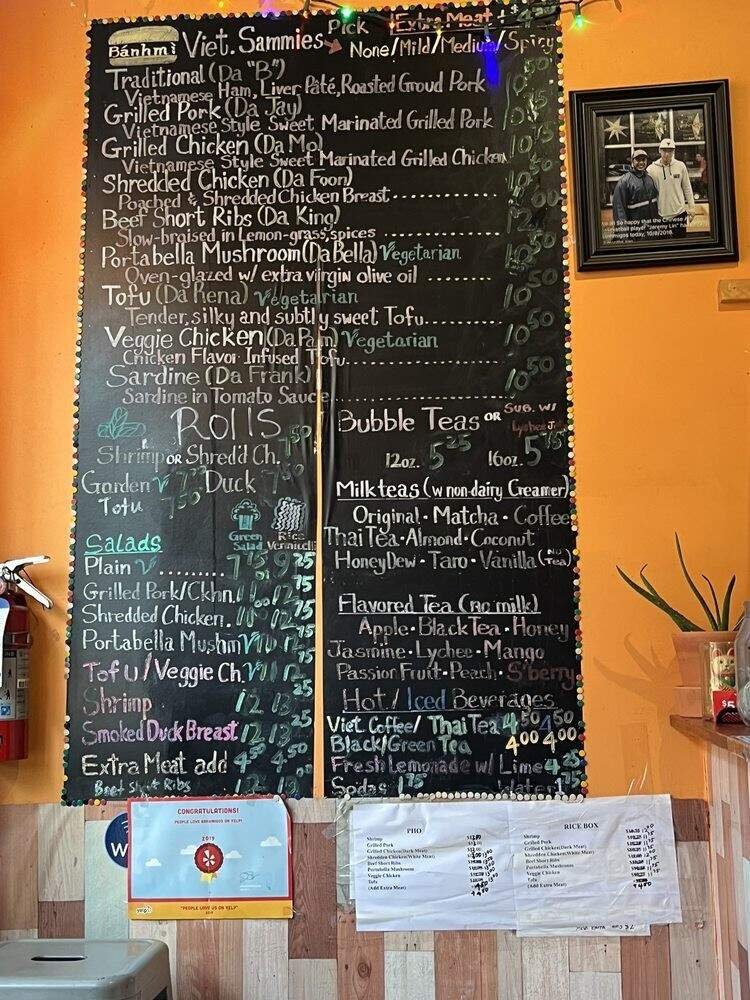 Bánhmì Viet. Sammies Pick Extra Meat + $4.50
None/Mild/Medium/Spicy
Traditional (Da "B") 10.50
Vietnamese Ham, Liver Pâté, Roasted Groud Pork
Grilled Pork (Da Jay) 10.75
Vietnamese Style Sweet Marinated Grilled Pork
Grilled Chicken (Da Mo) 10.75
Vietnamese Style Sweet Marinated Grilled Chicken
Shredded Chicken (Da Foon) 10.50
Poached & Shredded Chicken Breast
Beef Short Ribs (Da King) 12.00
Slow-braised in Lemon-grass, spices
Portabella Mushroom (Da Bella) Vegetarian 10.50
Oven-glazed w/ extra virgin olive oil
Tofu (Da Rena) Vegetarian 10.50
Tender, silky and subtly sweet Tofu
Veggie Chicken (Da Pam) Vegetarian 10.50
Chicken Flavor Infused Tofu
Sardine (Da Frank) 10.50
Sardine in Tomato Sauce
Rolls
Shrimp or Shred'd Ch. 7.50
Garden V Duck 7.50
Tofu 7.50
Green Salad Rice Vermicelli
Salads
Plain V 7.75 9.25
Grilled Pork/Ckhn.
Shredded Chicken.
Portabella Mushm V
Tofu/Veggie Ch. V
Shrimp
Smoked Duck Breast
Extra Meat add 4.50 4.50
Beef Short Ribs
Bubble Teas or Sub. w/ Lychee
12oz. 5.25 16oz. 5.75
Milk teas (w non-dairy Creamer)
Original • Matcha • Coffee
Thai Tea • Almond • Coconut
HoneyDew • Taro • Vanilla (No Tea)
Flavored Tea (no milk)
Apple • Black Tea • Honey
Jasmine • Lychee • Mango
Passion Fruit • Peach • S'berry
Hot / Iced Beverages
Viet Coffee/ Thai Tea 4.50 4.50
Black/Green Tea 4.00 4.00
Fresh Lemonade w/ Lime 4.25
Sodas 1.75 Water
so happy that the Chinese
basketball player "Jeremy Lin"
today, 10/8/2018.
$5
CONGRATULATIONS!
PEOPLE LOVE BANHMIGOS ON YELP!
2019
yelp
"PEOPLE LOVE US ON YELP"
2019
W
PHO
Shrimp
Grilled Pork
Grilled Chicken(Dark Meat)
Shredded Chicken(White Meat)
Beef Short Ribs
Portabella Mushroom
Veggie Chicken
Tofu
(Add Extra Meat)
RICE BOX
Shrimp
Grilled Pork
Grilled Chicken(Dark Meat)
Shredded Chicken(White Meat)
Beef Short Ribs
Portabella Mushroom
Veggie Chicken
Tofu
(Add Extra Meat)